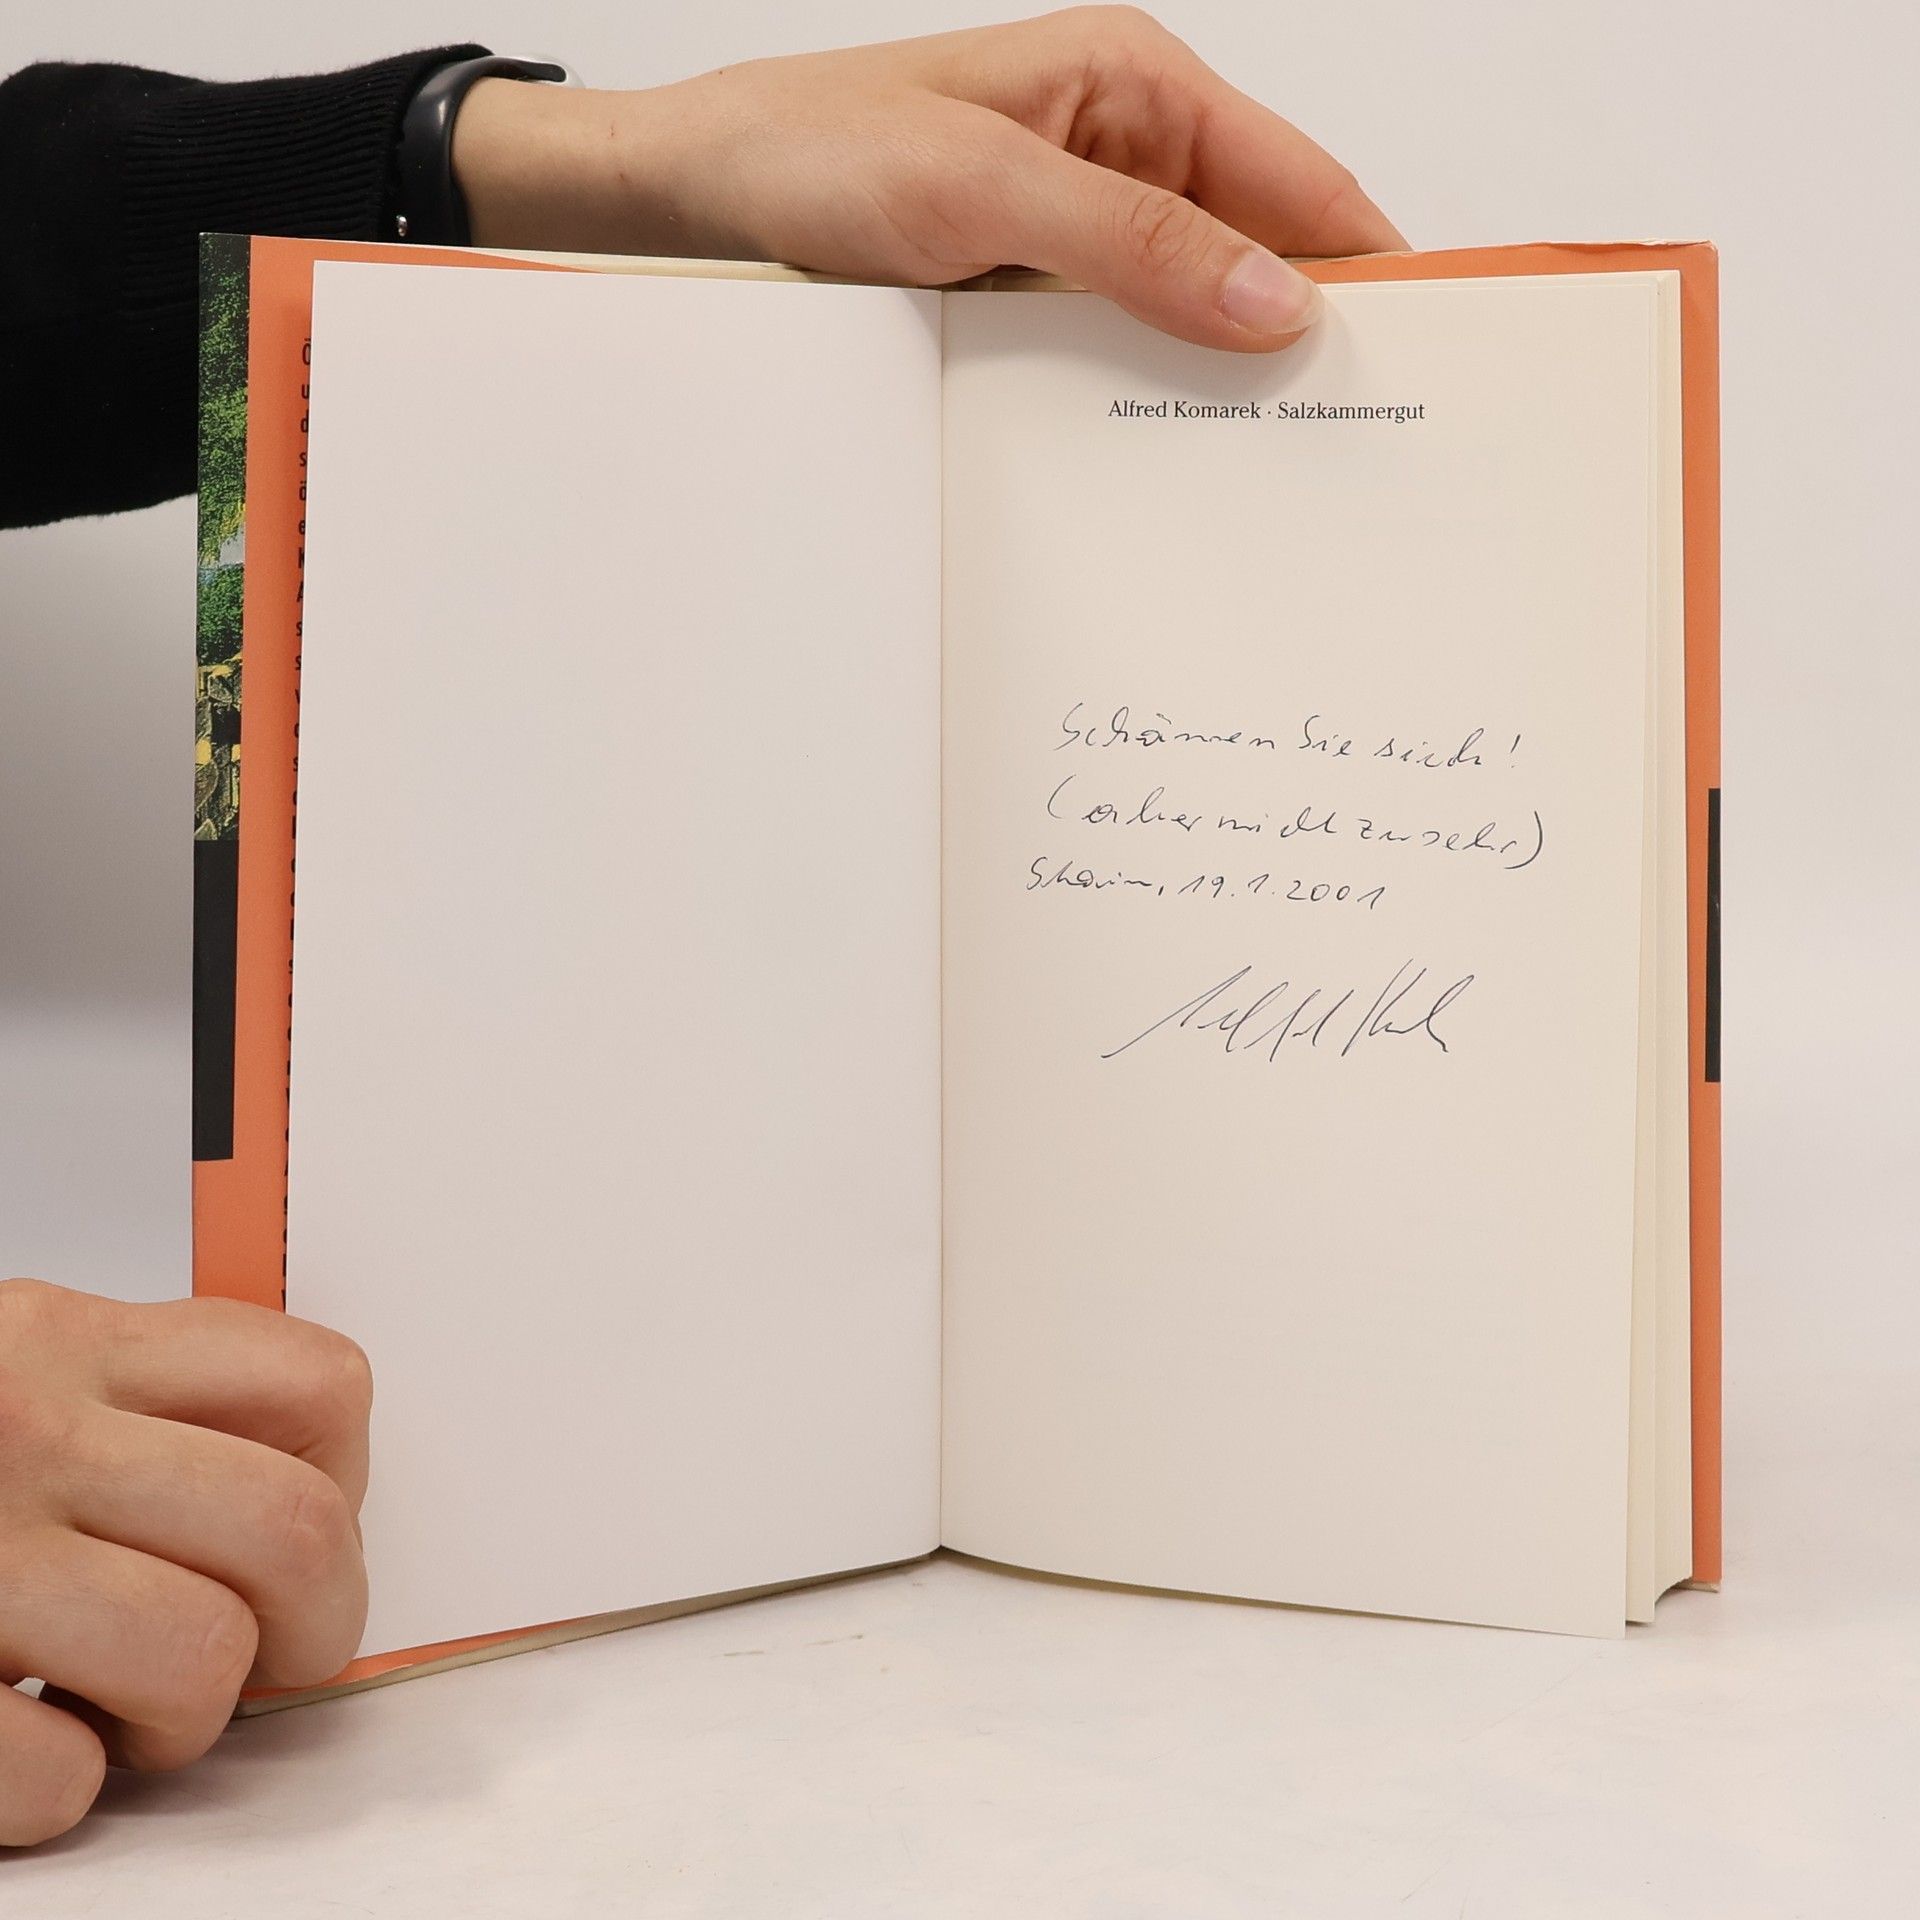 Alfred Komarek · Salzkammergut
Schämen Sie sich!
(aber nicht zu sehr)
19.1.2001